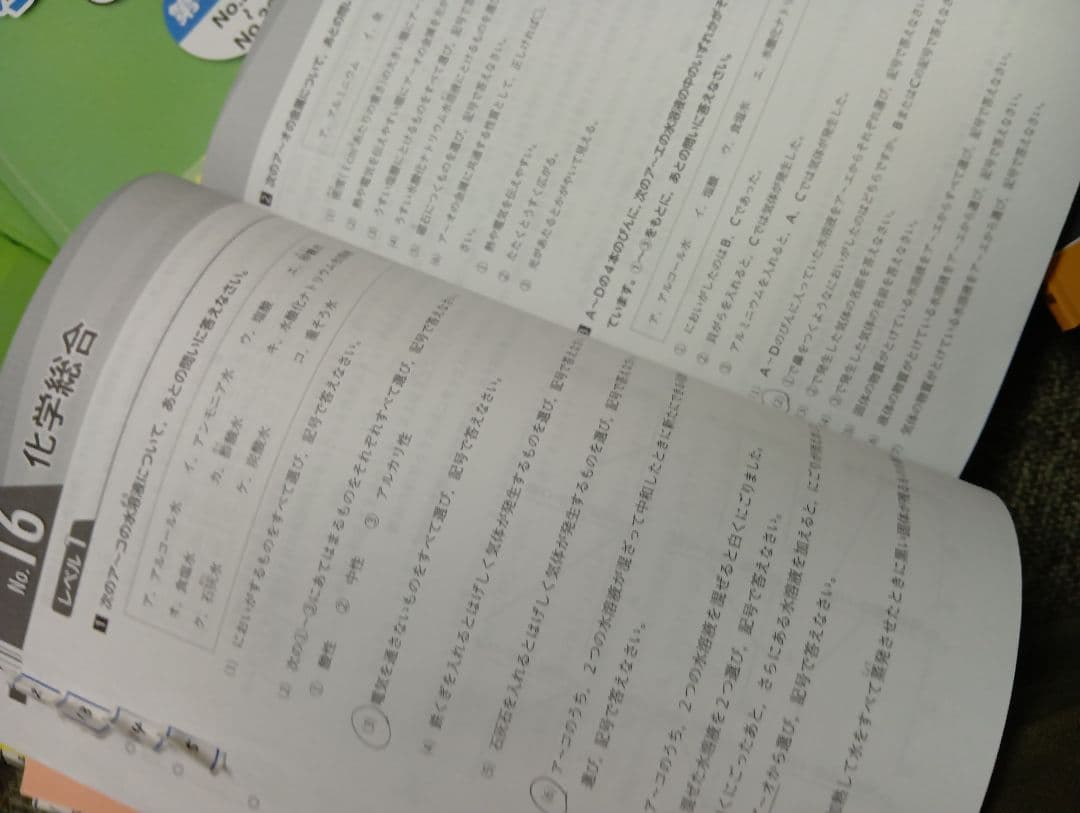 No.16
化学総合
レベル1
1 次のア～コの水溶液について、あとの問いに答えなさい。
ア．アルコール水 イ．アンモニア水 ウ．塩酸 エ．
オ．食塩水 カ．酢酸水 キ．水酸化ナトリウム
ク．石灰水 ケ．炭酸水 コ．重そう水
(1) においがするものをすべて選び，記号で答えなさい。
(2) 次の①～③にあてはまるものをそれぞれすべて選び，記号で答え
① 酸性 ② 中性 ③ アルカリ性
(3) 電気を通さないものをすべて選び，記号で答えなさい。
(4) 鉄くぎを入れるとはげしく気体が発生するものを選び，記号で答え
(5) 石灰石を入れるとはげしく気体が発生するものを選び，記号で答え
(6) ア～コのうち，2つの水溶液が混ざって中和したときに新たにできる
選び，記号で答えなさい。
ア～コのうち，2つの水溶液を混ぜると白くにごりました。
混ぜた水溶液を2つ選び，記号で答えなさい。
くにごったあと，さらにある水溶液を加えると，にごりが
ア～オから選び，記号で答えなさい。
熱して水をすべて蒸発させたときに黒い固体が残る
第
No.
～
No.
2 次のア～オの金属について，あとの問い
ア．アルミニウム イ．金
(2) 熱や電気を伝えやすい順にア～オの金属を
(3) うすい塩酸にとけるものをすべて選び，記号で答
(4) うすい水酸化ナトリウム水溶液にとけるものを選
(5) 磁石につくものを選び，記号で答えなさい。
(6) ア～オの金属に共通する性質として，正しければ○，
さい。
① 熱や電気を伝えやすい。
② たたくとうすく広がる。
③ 光があたるとかがやいて見える。
3 A～Dの4本のびんに，次のア～エの水溶液の中のいずれかがそ
ています。①～③をもとに，あとの問いに答えなさい。
ア．アルコール水 イ．塩酸 ウ．食塩水 エ．水酸化ナトリ
① においがしたのはB，Cであった。
② 貝がらを入れると，Cでは気体が発生した。
③ アルミニウムを入れると，A，Cでは気体が発生した。
A～Dのびんに入っていた水溶液をア～エからそれぞれ選び，記号で答えなさい
①で鼻をつくようなにおいがしたのはどちらですか。BまたはCの記号で答えなさ
②で発生した気体の名前を答えなさい。
③で発生した気体の名前を答えなさい。
固体の物質がとけている水溶液をア～エからすべて選び，記号で答えなさい。
液体の物質がとけている水溶液をア～エから選び，記号で答えなさい。
気体の物質がとけている水溶液をア～エから選び，記号で答えなさい。